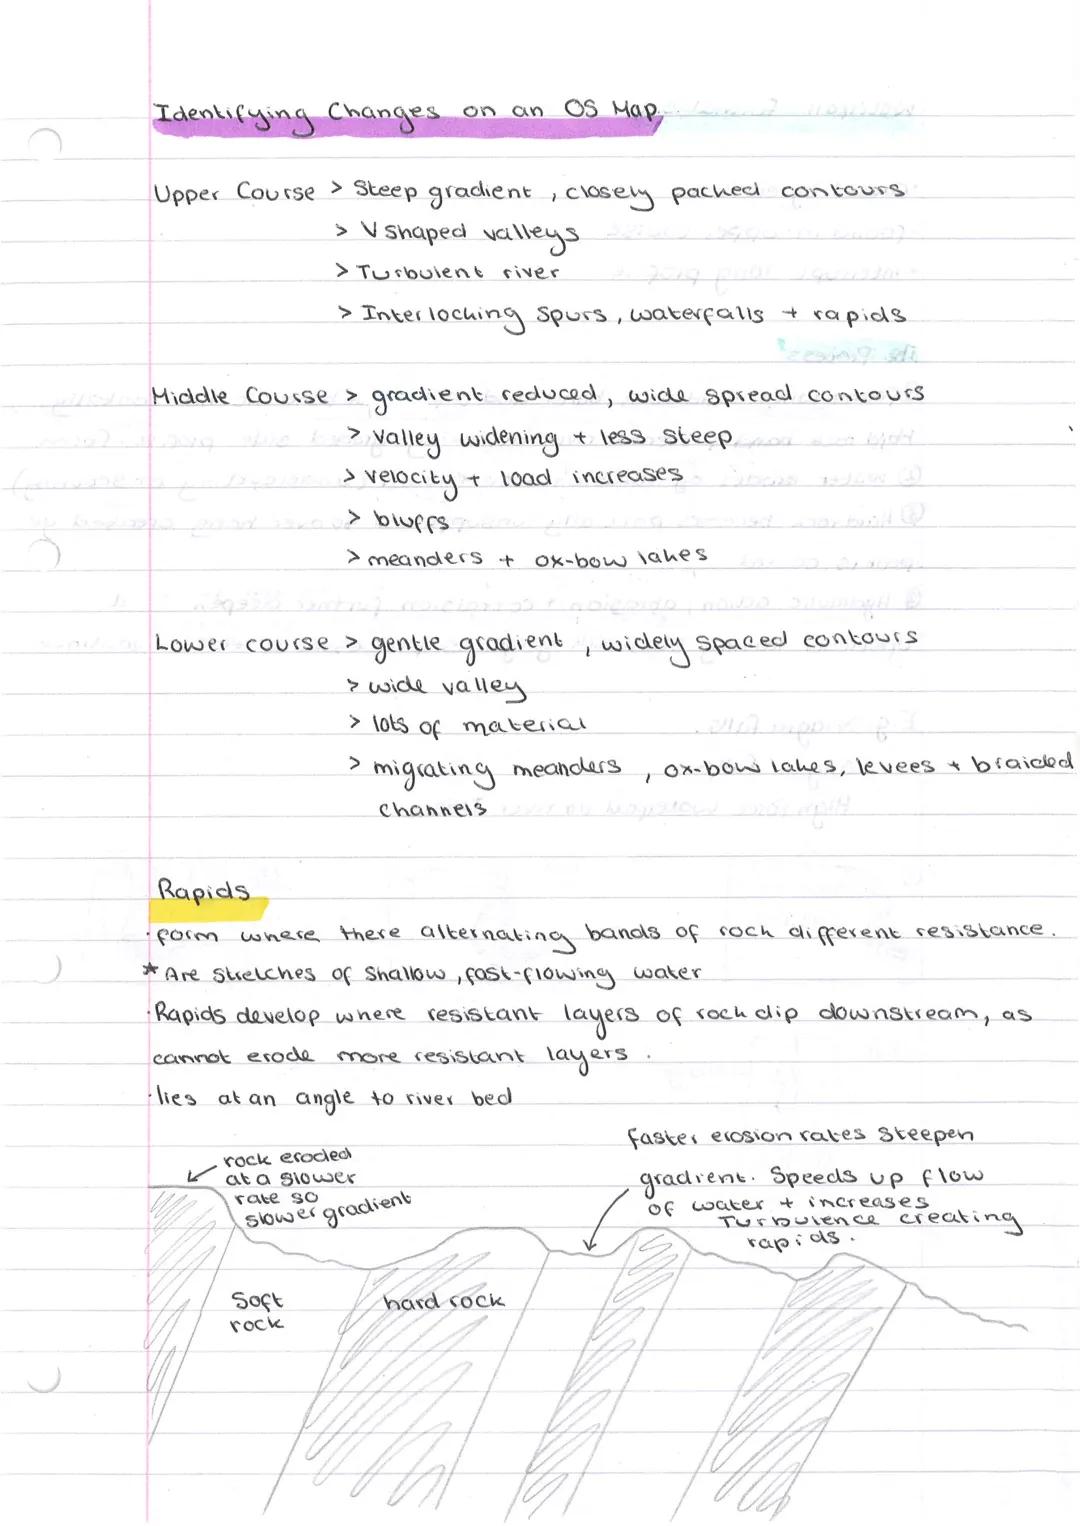 Identifying Changes on an OS Map.
Upper Course > Steep gradient, closely packed contours
> V shaped valleys
> Turbulent river
> Interlocking Spurs, waterfalls + rapids
Middle Course > gradient reduced, wide spread contours
> valley widening + less steep
> velocity + load increases
> bluffs
> meanders + ox-bow lakes
Lower course > gentle gradient, widely spaced contours
> wide valley
> lots of material
> migrating meanders, ox-bow lakes, levees + braided
channels
Rapids
· form where there alternating bands of rock different resistance.
* Are stretches of shallow, fast-flowing water
· Rapids develop where resistant layers of rock dip downstream, as
cannot erode more resistant layers.
· lies at an angle to river bed
rock eroded
at a slower
rate so
slower gradient
faster erosion rates steepen
gradient. Speeds up flow
of water + increases
Turbulence creating
rapids.
Soft
rock
hard rock